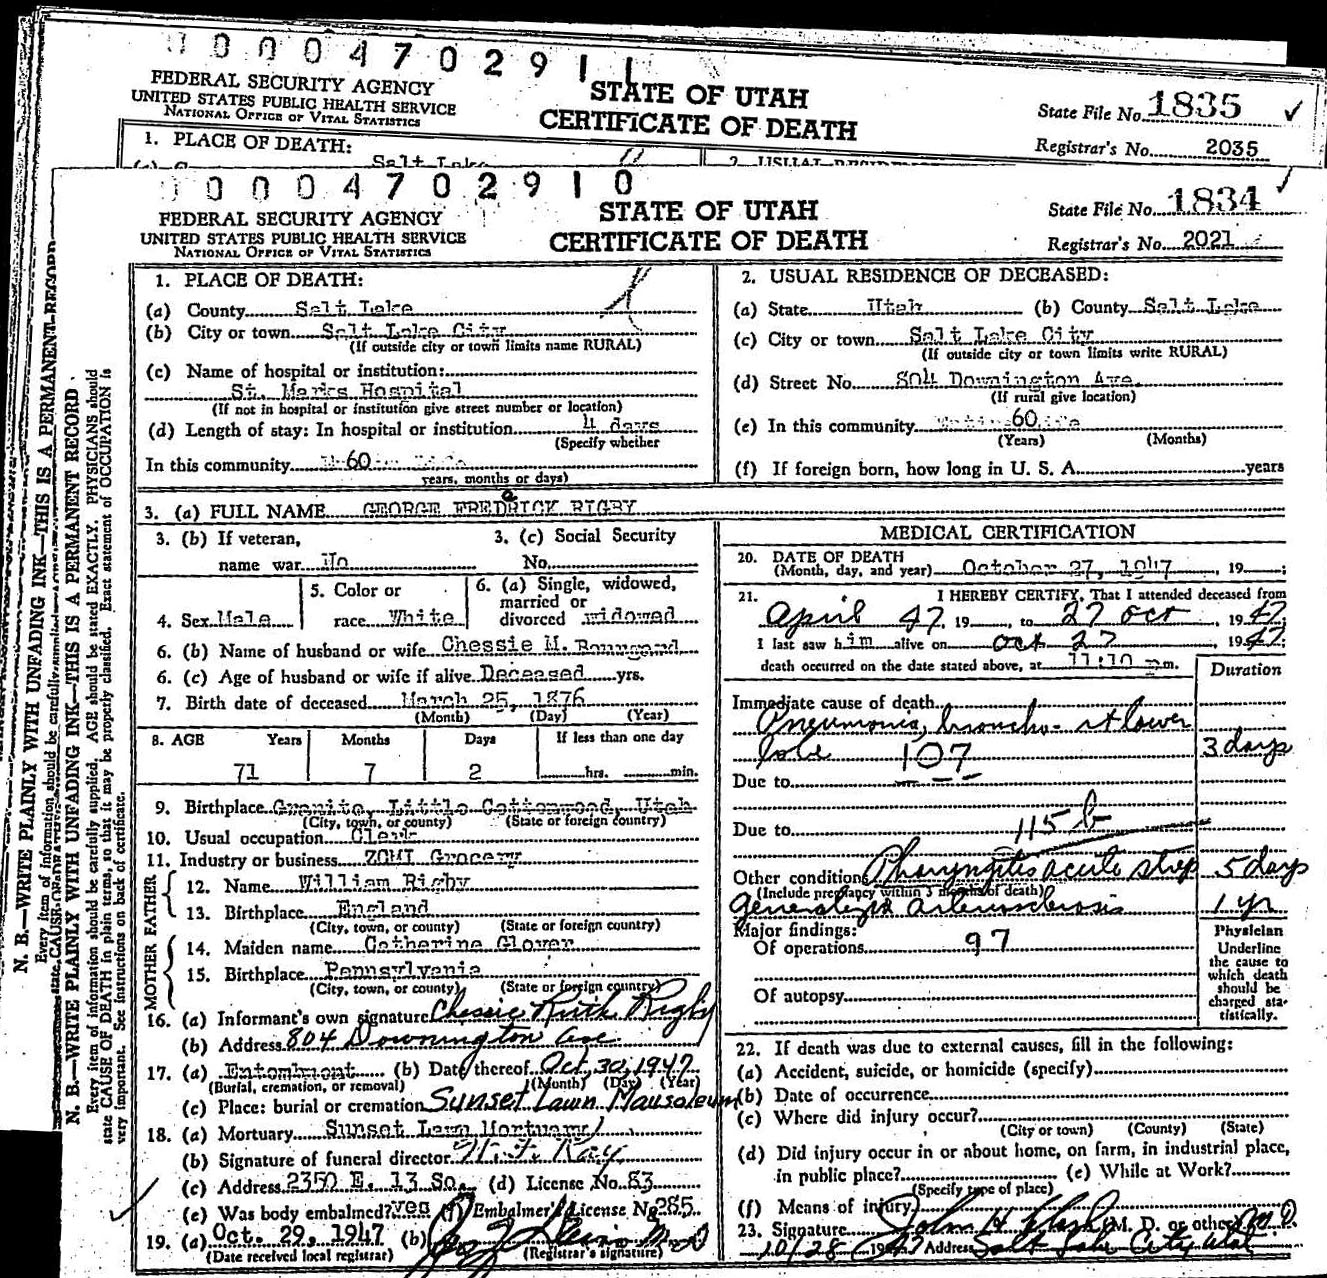 0 0 0 4 7 0 2 9 1 1
FEDERAL SECURITY AGENCY
UNITED STATES PUBLIC HEALTH SERVICE
NATIONAL OFFICE OF VITAL STATISTICS
STATE OF UTAH
CERTIFICATE OF DEATH
State File No. 1835 ✓
Registrar's No. 2035
1. PLACE OF DEATH:
Salt Lake
2. USUAL RESIDENCE
0 0 0 4 7 0 2 9 1 0
FEDERAL SECURITY AGENCY
UNITED STATES PUBLIC HEALTH SERVICE
NATIONAL OFFICE OF VITAL STATISTICS
STATE OF UTAH
CERTIFICATE OF DEATH
State File No. 1834 ✓
Registrar's No. 2021
N. B.—WRITE PLAINLY WITH UNFADING INK—THIS IS A PERMANENT RECORD
N. B.—WRITE PLAINLY WITH UNFADING INK—THIS IS A PERMANENT RECORD.
Every item of information should be carefully supplied. AGE should be stated EXACTLY. PHYSICIANS should
state CAUSE OF DEATH in plain terms, so that it may be properly classified. Exact statement of OCCUPATION is
very important. See instructions on back of certificate.
1. PLACE OF DEATH:
(a) County Salt Lake
(b) City or town Salt Lake City
(If outside city or town limits name RURAL)
(c) Name of hospital or institution:
St. Marks Hospital
(If not in hospital or institution give street number or location)
(d) Length of stay: In hospital or institution 4 days
(Specify whether
In this community 60
years, months or days)
2. USUAL RESIDENCE OF DECEASED:
(a) State Utah (b) County Salt Lake
(c) City or town Salt Lake City
(If outside city or town limits write RURAL)
(d) Street No. 804 Downington Ave.
(If rural give location)
(e) In this community 60
(Years) (Months)
(f) If foreign born, how long in U. S. A. years
3. (a) FULL NAME GEORGE FREDRICK RIGBY
3. (b) If veteran,
name war No
3. (c) Social Security
No.
4. Sex Male
5. Color or
race White
6. (a) Single, widowed,
married or
divorced widowed
6. (b) Name of husband or wife Chessie M.
6. (c) Age of husband or wife if alive Deceased yrs.
7. Birth date of deceased March 25, 1876
(Month) (Day) (Year)
8. AGE Years Months Days If less than one day
71 7 2 hrs. min.
9. Birthplace Granite, Little Cottonwood, Utah
(City, town, or county) (State or foreign country)
10. Usual occupation Clerk
11. Industry or business ZCMI Grocery
FATHER
12. Name William Rigby
13. Birthplace England
(City, town, or county) (State or foreign country)
MOTHER
14. Maiden name Catherine Glover
15. Birthplace Pennsylvania
(City, town, or county) (State or foreign country)
16. (a) Informant's own signature Chessie Ruth Rigby
(b) Address 804 Downington Ave
17. (a) Entombment (b) Date thereof Oct, 30, 1947
(Burial, cremation, or removal) (Month) (Day) (Year)
(c) Place: burial or cremation Sunset Lawn Mausoleum
18. (a) Mortuary Sunset Lawn Mortuary
(b) Signature of funeral director Ray
(c) Address 2350 E. 13 So. (d) License No. 83
(e) Was body embalmed? yes (f) Embalmer's License No. 285
19. (a) Oct. 29, 1947 (b)
(Date received local registrar) (Registrar's signature)
MEDICAL CERTIFICATION
20. DATE OF DEATH
(Month, day, and year) October 27, 1947, 19
21. I HEREBY CERTIFY, That I attended deceased from
April 47, 19 to 27 oct, 1947.
I last saw him alive on oct 27 1947.
death occurred on the date stated above, at 11:10 p m.
Duration
Immediate cause of death
Pneumonia, broncho- rt lower
lobe 107 3 days
Due to
Due to 115 b
Other conditions Pharyngitis acute strep 5 days
(Include pregnancy within 3 months of death)
generalized arteriosclerosis 1 yr
Major findings:
Of operations 97
Of autopsy
Physician
Underline
the cause to
which death
should be
charged sta-
tistically.
22. If death was due to external causes, fill in the following:
(a) Accident, suicide, or homicide (specify)
(b) Date of occurrence
(c) Where did injury occur?
(City or town) (County) (State)
(d) Did injury occur in or about home, on farm, in industrial place,
in public place? (e) While at Work?
(Specify type of place)
(f) Means of injury
23. Signature John H. M. D. or other M.D.
10/28/1947 Address Salt Lake City Utah